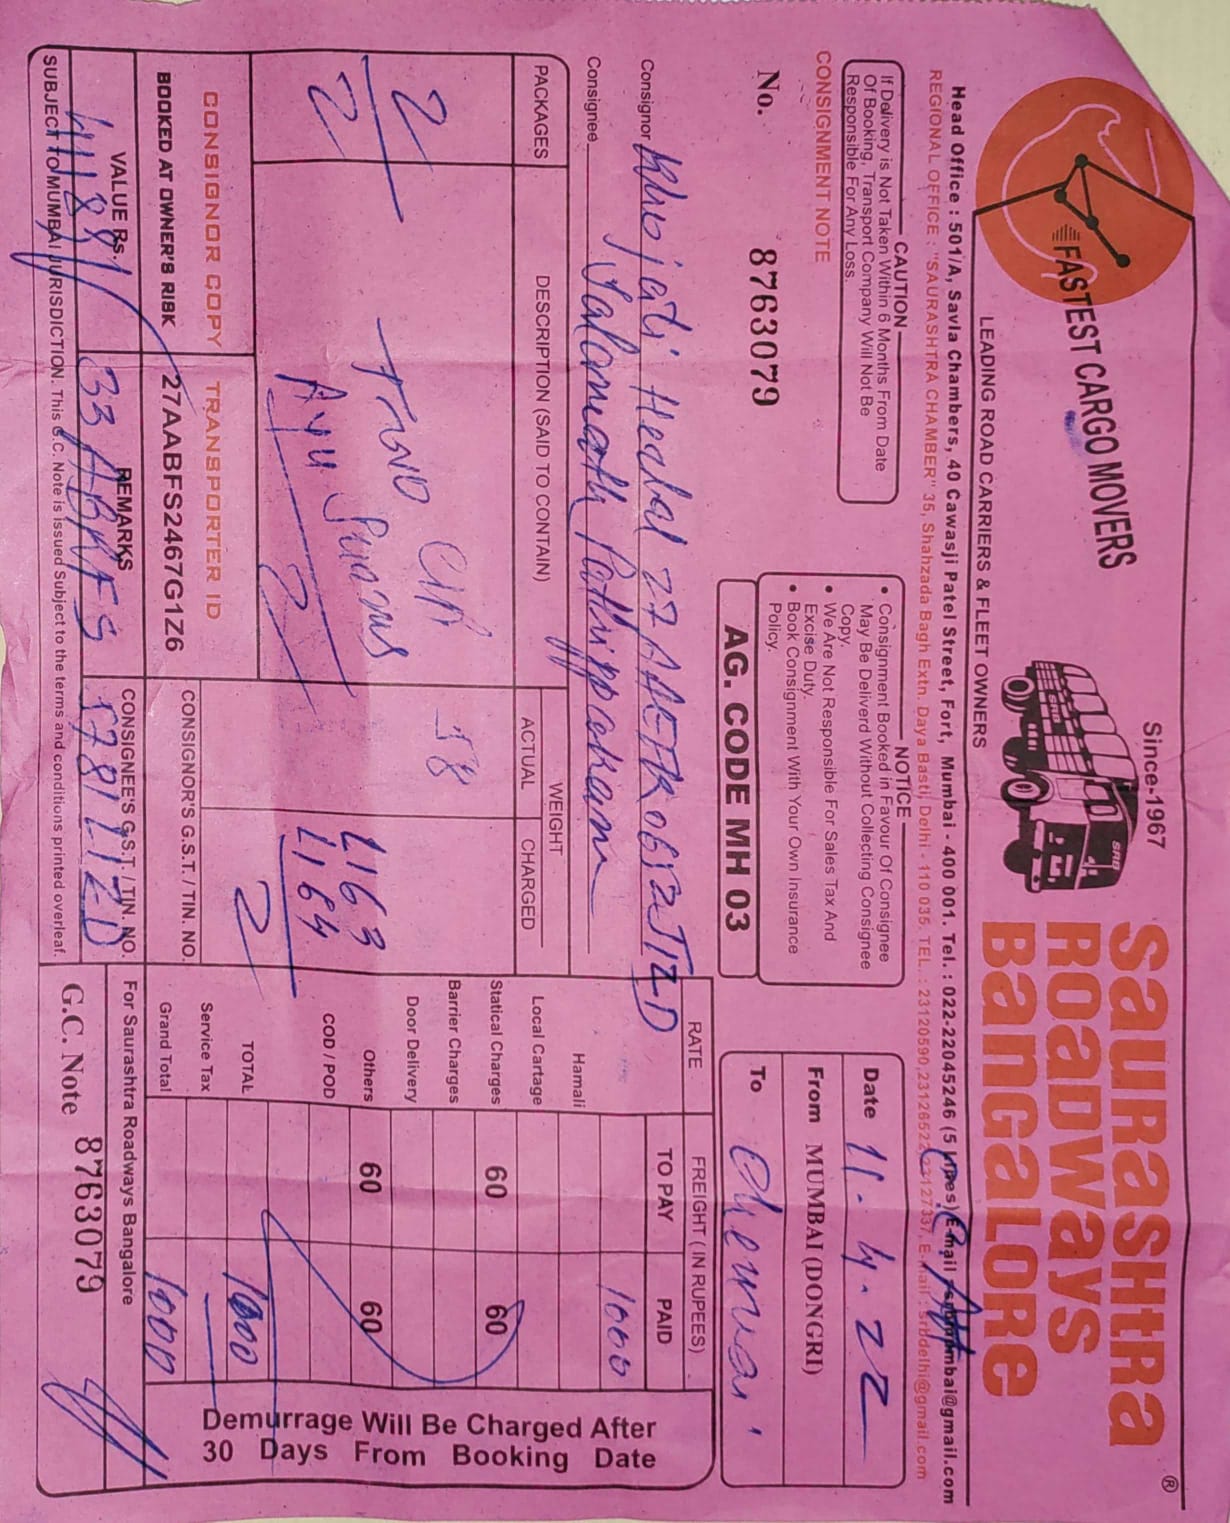 FASTEST CARGO MOVERS
Since-1967
SRB
SRB
SaURaSHtRa
ROaDWayS
BaNGaLORe
®
LEADING ROAD CARRIERS & FLEET OWNERS
Head Office : 501/A, Savla Chambers, 40 Cawasji Patel Street, Fort, Mumbai - 400 001. Tel. : 022-22045246 (5 Lines) E-mail : srbmumbai@gmail.com
REGIONAL OFFICE : "SAURASHTRA CHAMBER" 35, Shahzada Bagh Extn. Daya Basti, Delhi - 110 035. TEL. : 23120590,23126522,23127337, E-mail : srbdelhi@gmail.com
CAUTION
If Delivery is Not Taken Within 6 Months From Date
Of Booking, Transport Company Will Not Be
Responsible For Any Loss.
NOTICE
• Consignment Booked in Favour Of Consignee
May Be Deliverd Without Collecting Consignee
Copy.
• We Are Not Responsible For Sales Tax And
Excise Duty.
• Book Consignment With Your Own Insurance
Policy.
Date 11.4.22
From MUMBAI (DONGRI)
To Chennai.
CONSIGNMENT NOTE
No. 8763079
AG. CODE MH 03
Consignor Heabal
Consignee Salamath Pathippakam
PACKAGES
DESCRIPTION (SAID TO CONTAIN)
WEIGHT
ACTUAL
CHARGED
RATE
FREIGHT (IN RUPEES)
TO PAY
PAID
1000
2
Two C/B
58
L163
L164
2
2
Ayu
2
Hamali
Local Cartage
Statical Charges 60 60
Barrier Charges
Door Delivery
Others 60 60
COD / POD
TOTAL 1000
Service Tax
Grand Total 1000
Demurrage Will Be Charged After
30 Days From Booking Date
CONSIGNOR COPY
TRANSPORTER ID
BOOKED AT OWNER'S RISK
27AABFS2467G1Z6
CONSIGNOR'S G.S.T. / TIN. NO.
VALUE Rs.
41188/
REMARKS
33 ABRFS
CONSIGNEE'S G.S.T. / TIN. NO.
5781L1ZD
For Saurashtra Roadways Bangalore
G.C. Note 8763079
SUBJECT TO MUMBAI JURISDICTION. This G.C. Note is issued Subject to the terms and conditions printed overleaf.